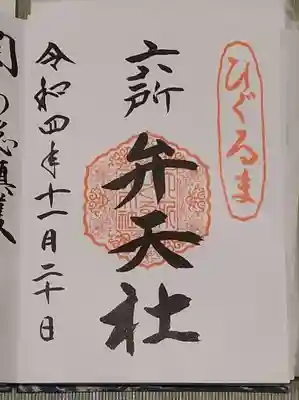 ひぐるま
六所
弁天社
令和四年十一月二十日